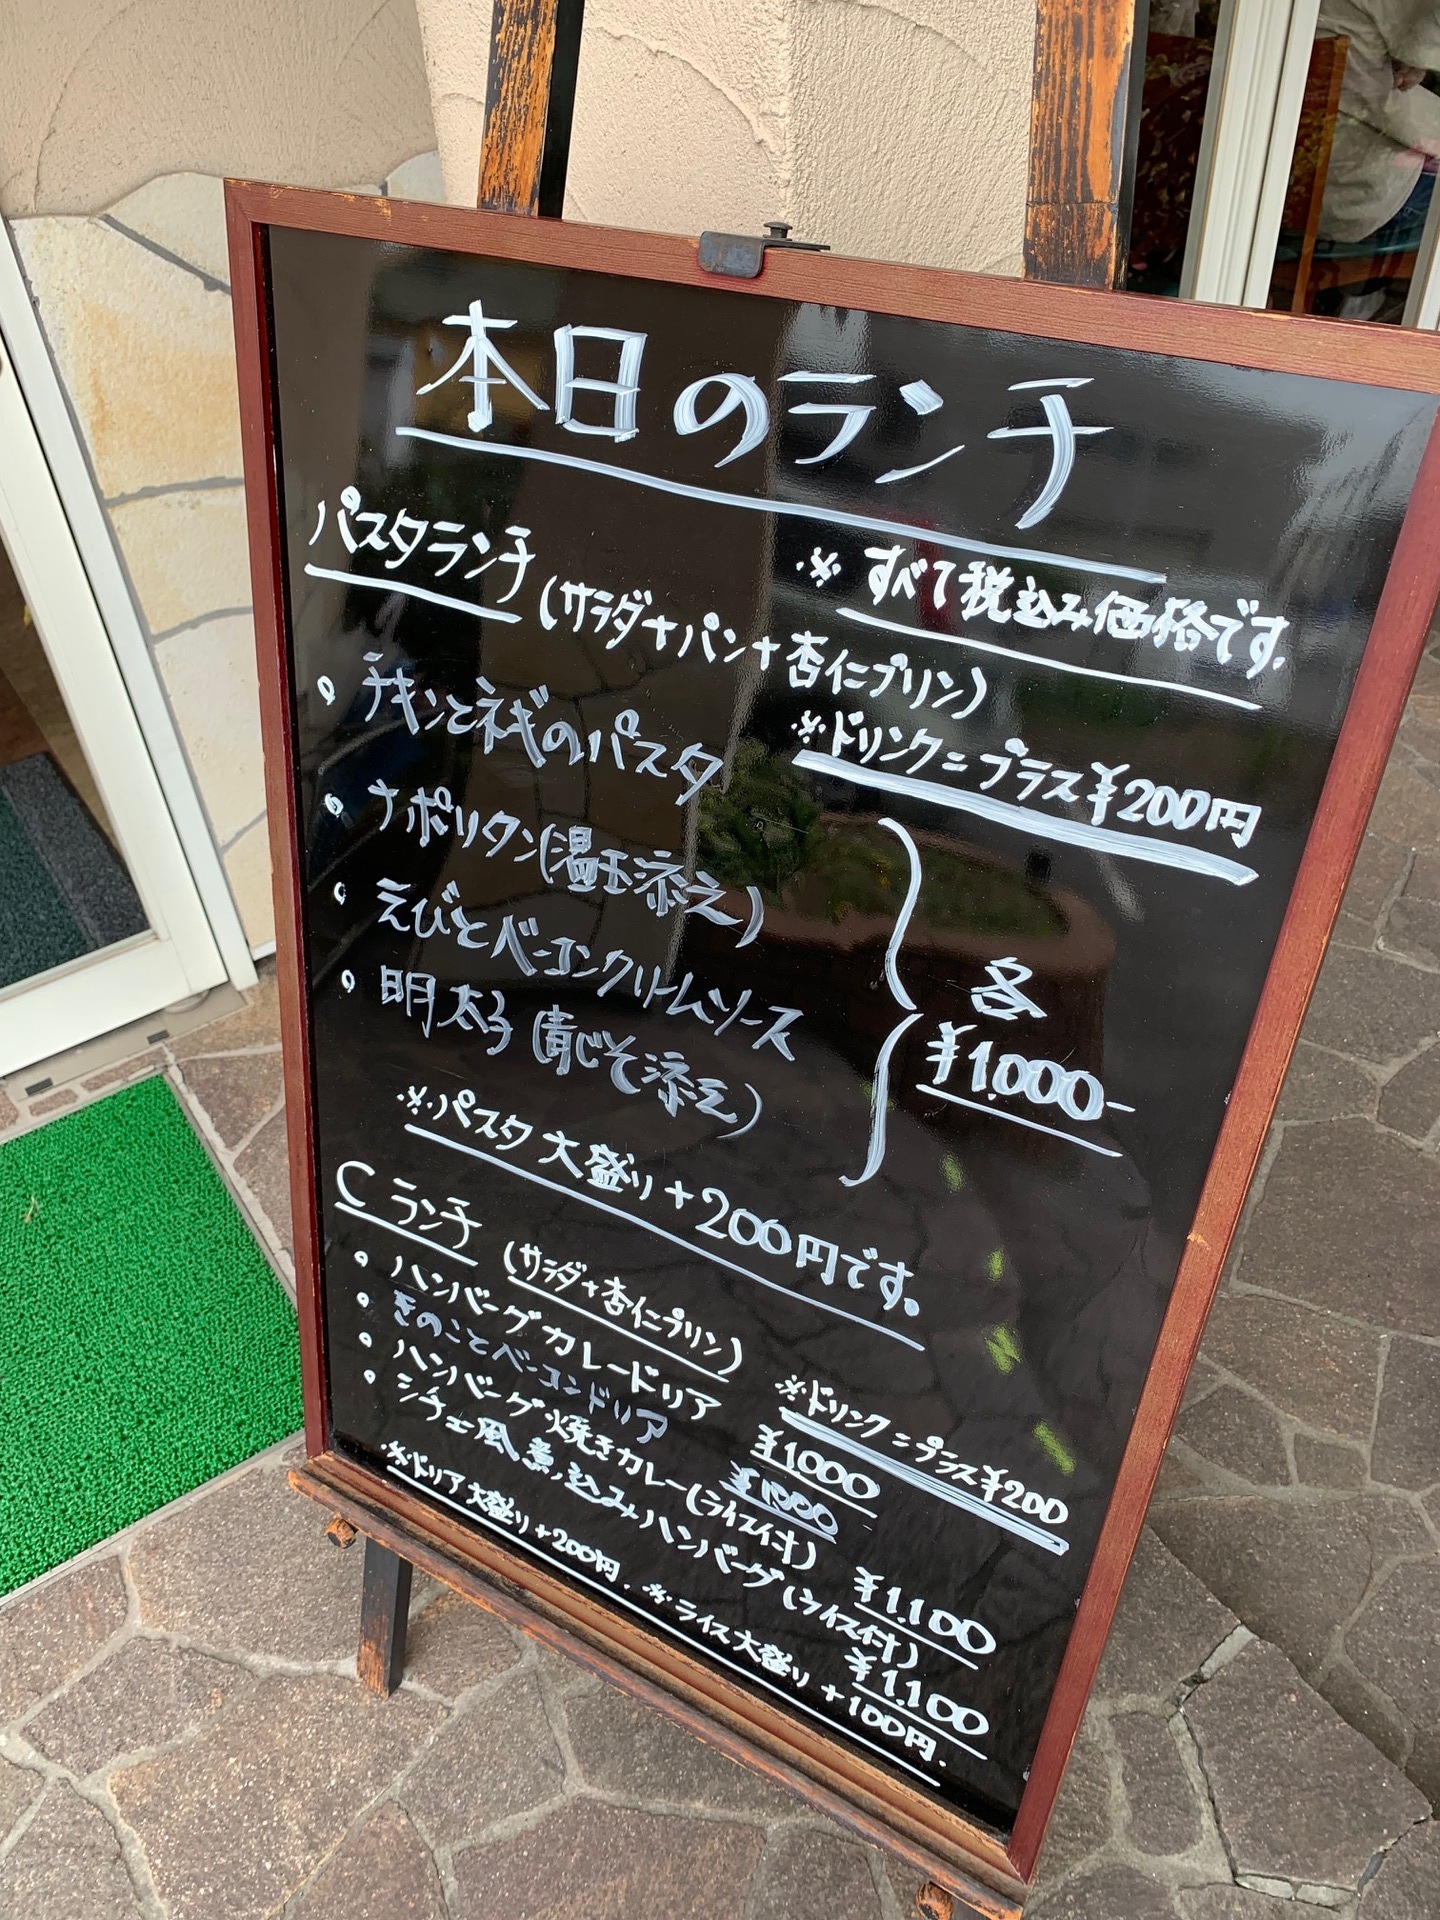 本日のランチ
※すべて税込み価格です.
パスタランチ(サラダ+パン+杏仁プリン)
※ドリンク=プラス¥200円
• チキンとネギのパスタ
• ナポリタン(温玉添え)
• えびとベーコンクリームソース
• 明太子(青じそ添え)
各
¥1.000-
※パスタ大盛り+200円です。
Cランチ(サラダ+杏仁プリン)
※ドリンク=プラス¥200
• ハンバーグカレードリア ¥1000
• きのことベーコンドリア ¥1000
• ハンバーグ焼きカレー(ライス付) ¥1.100
• シチュー風煮込みハンバーグ(ライス付) ¥1.100
※ドリア大盛り+200円. ※ライス大盛り+100円.